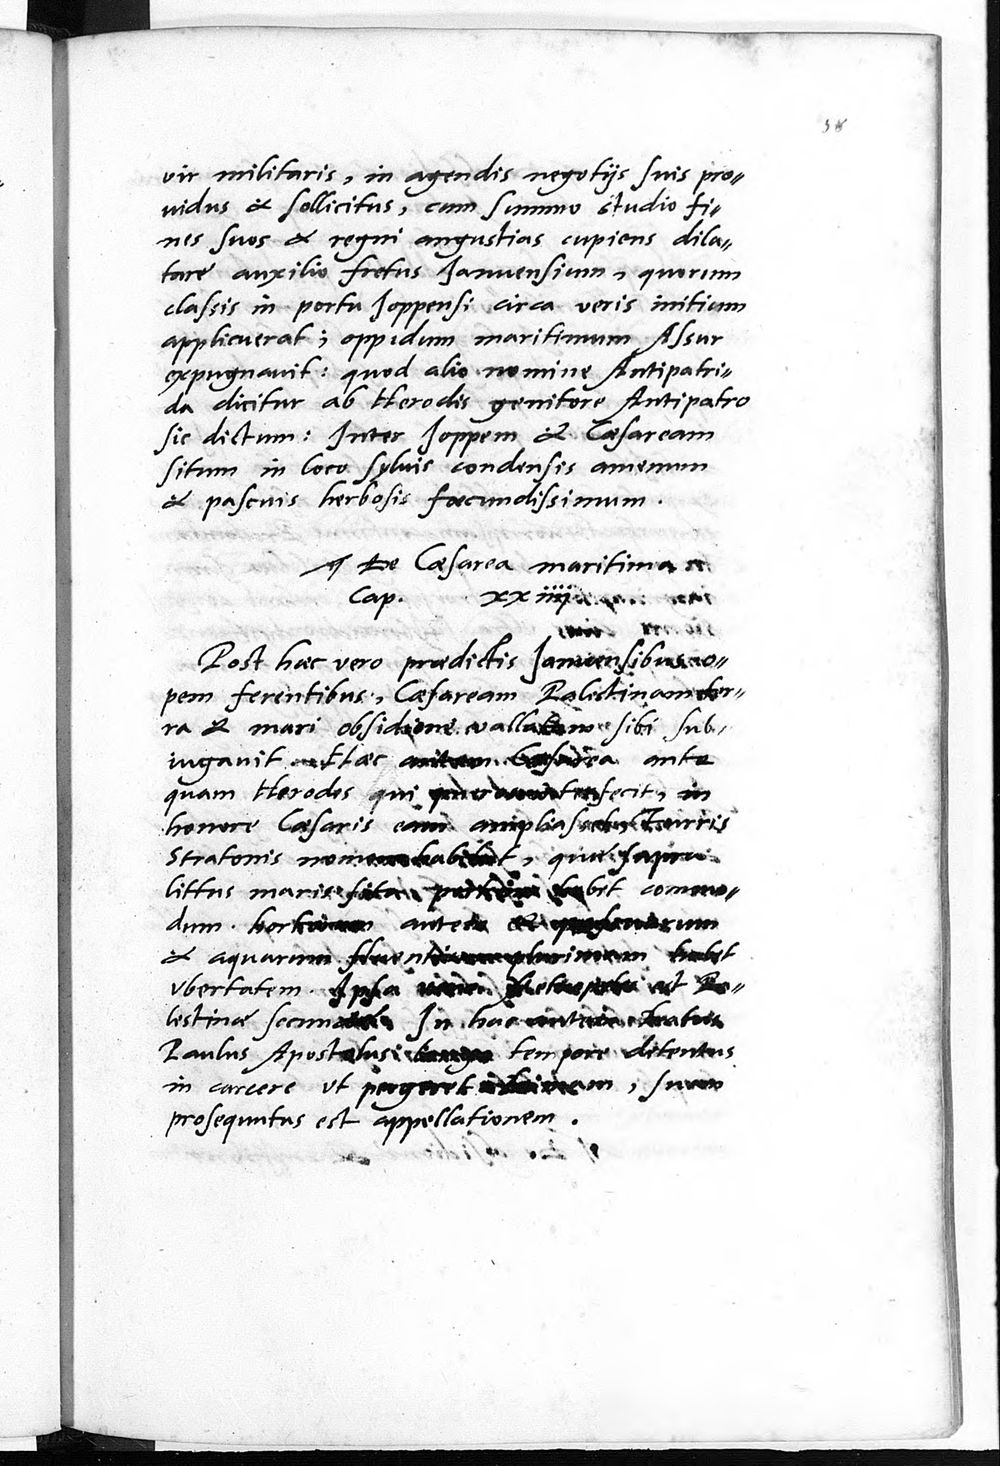 vir militaris, in agendis negotijs suis pro„
uidus & sollicitus, cum summo studio fi„
nes suos & regni angustias cupiens dila„
tare auxilio fretus Januensium, quorum
classis in portu Joppensi circa veris initium
applicuerat; oppidum maritimum Assur
expugnauit: quod alio nomine Antipatri„
da dicitur ab Herodis genitore Antipatro
sic dictum: Inter Joppem & Cæsaream
situm in loco syluis condensis amenum
& pascuis herbosis fœcundissimum.
¶ De Cæsarea maritima
Cap. xxiiij
Post hæc vero prædictis Januensibus o„
pem ferentibus, Cæsaream Palestinam ter„
ra & mari obsidione vallatam sibi sub„
iugauit. Hæc autem Cæsarea ante
quam Herodes qui fecit, in
honore Cæsaris eam ampliasset, Turris
Stratonis nomen habebat, quæ supra
littus maris sita portum habet commo„
dum. hortorum autem &
& aquarum fluentium plurimam habet
vbertatem. Ipsa est Pa„
lestinæ secunda. In hac autem beatus
Paulus Apostolus longo tempore detentus
in carcere vt pergeret, suam
prosequutus est appellationem.